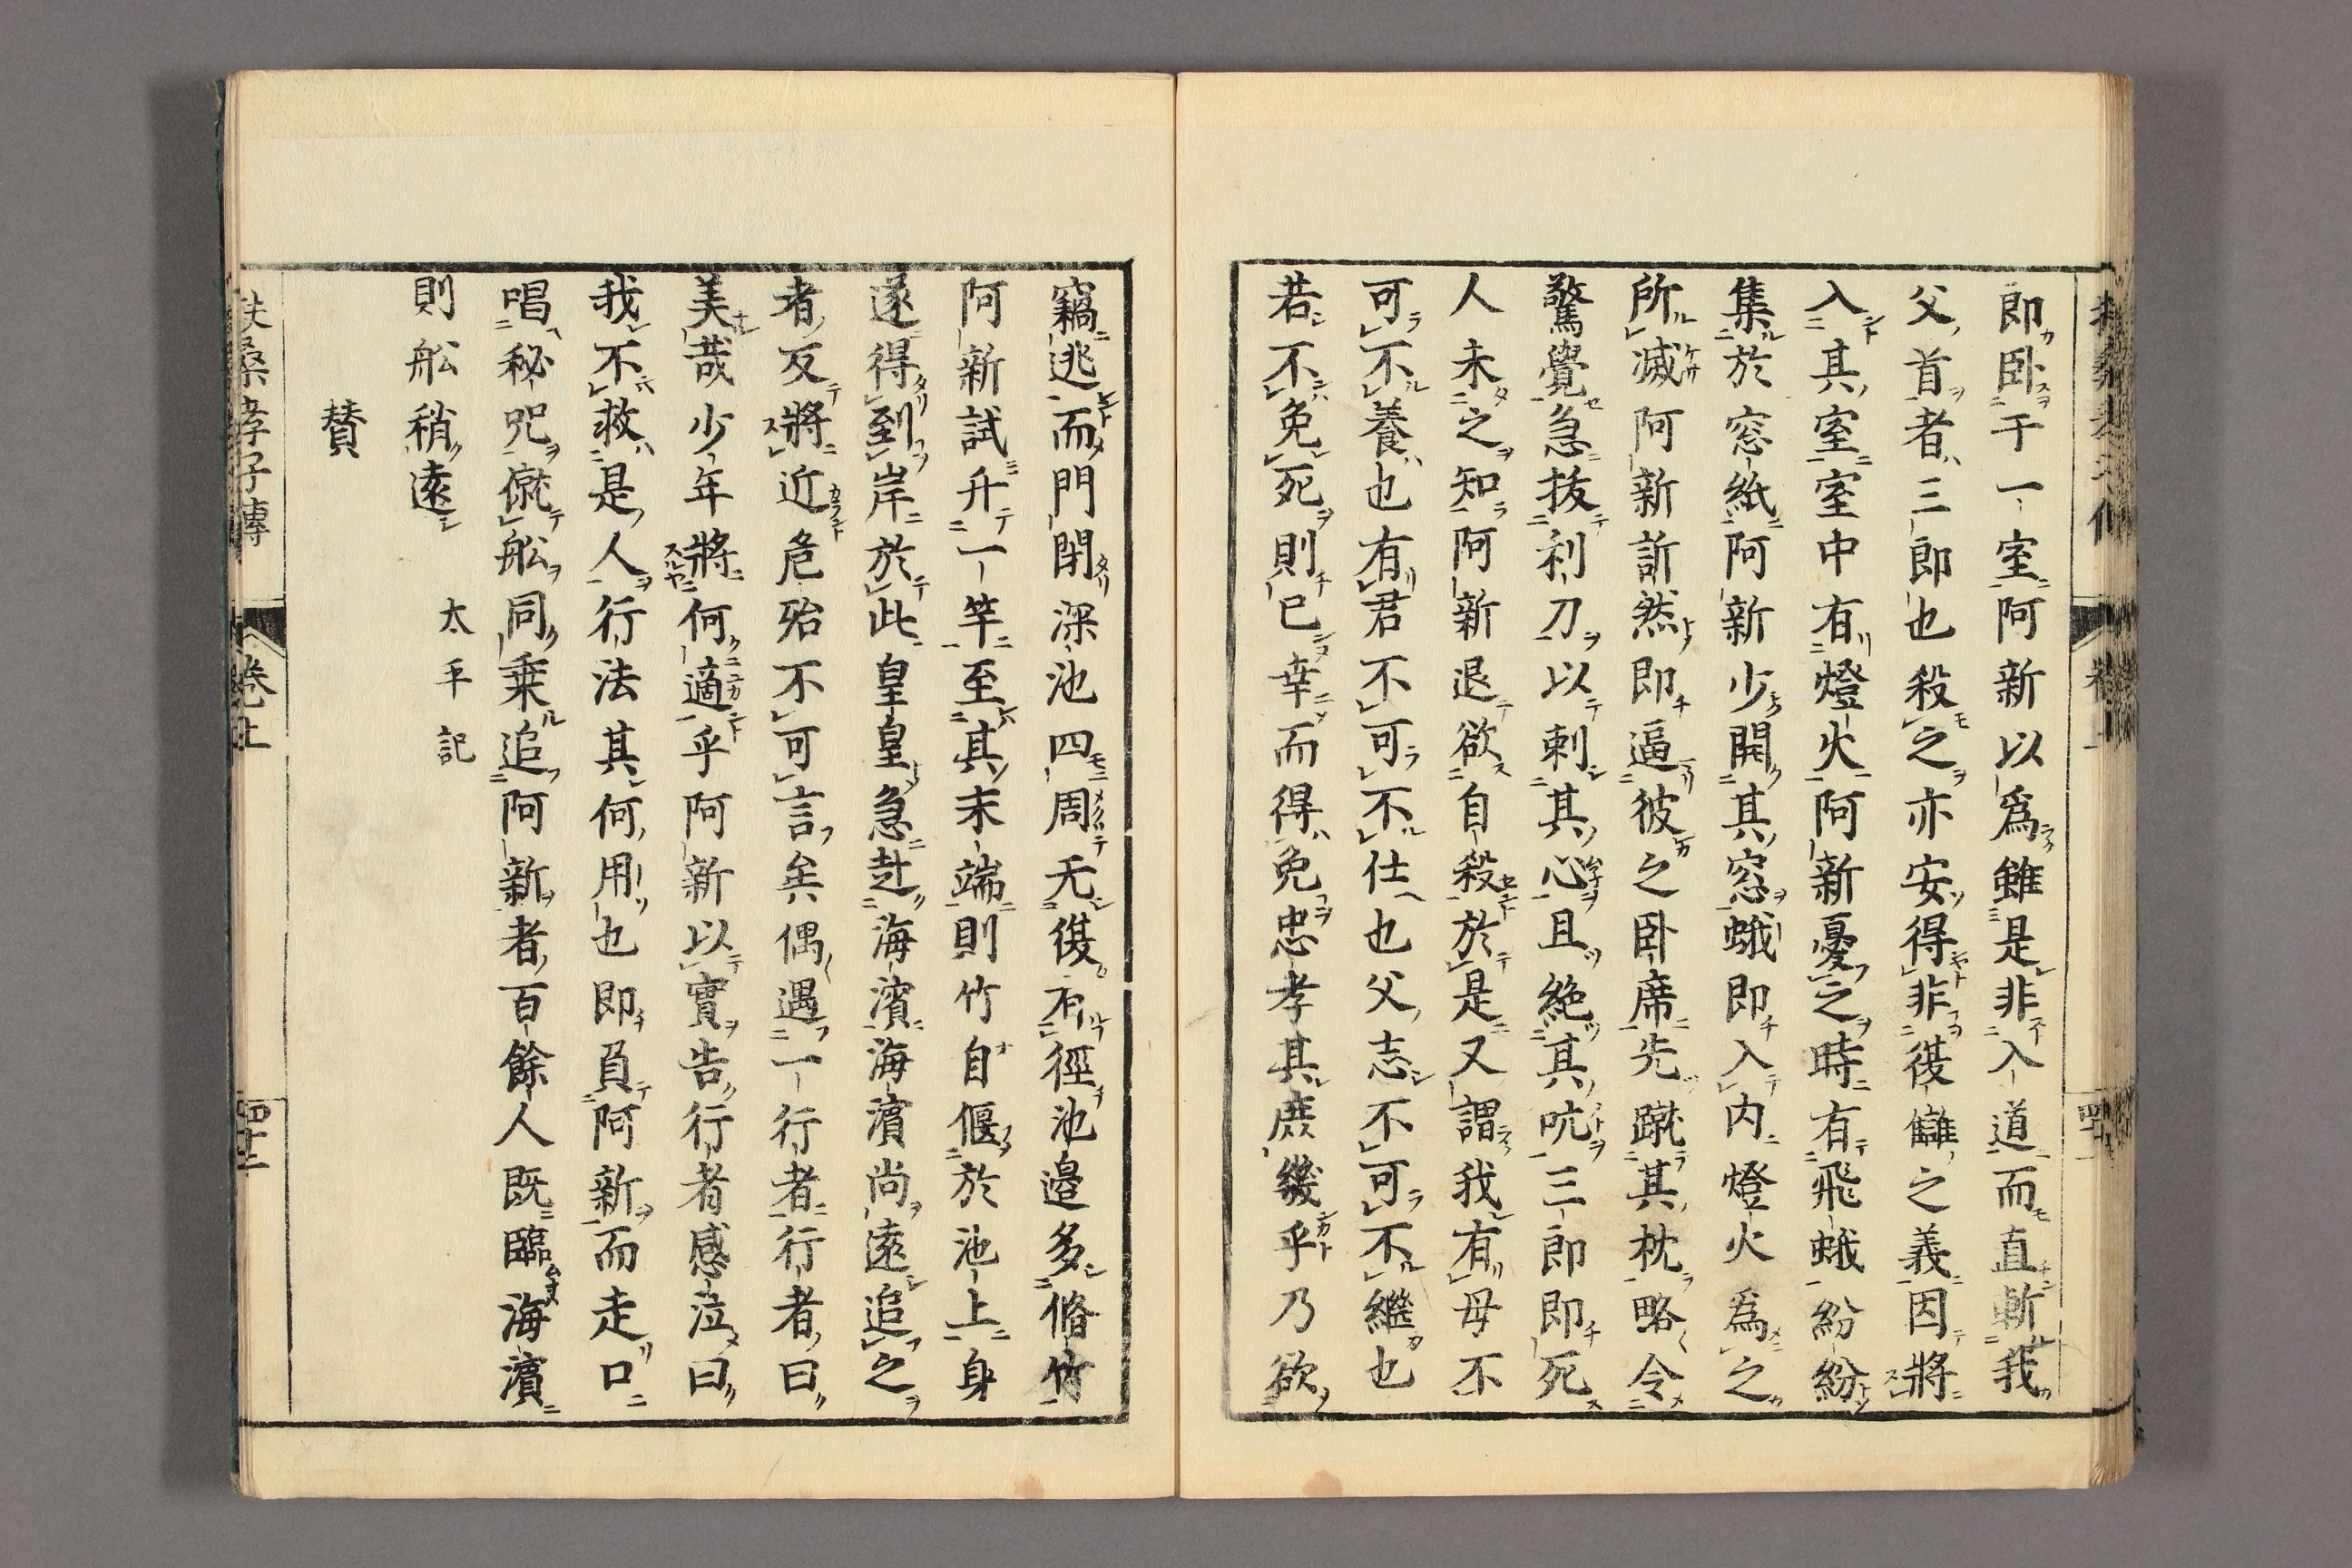 即卧于一室阿新以爲雖是非入道而直斬我
父首者三郎也殺之亦安得非復讎之義因將
入其室室中有燈火阿新憂之時有飛蛾紛紛
集於窓紙阿新少開其窓蛾即入内燈火爲之
所滅阿新訢然即逼彼之卧席先蹴其枕略令
驚覺急抜利刀以刺其心且絶其吭三郎即死
人未之知阿新退欲自殺於是又謂我有母不
可不養也有君不可不仕也父志不可不繼也
若不免死則已幸而得免忠孝其庶幾乎乃欲
竊逃而門閉深池四周无復有徑池邉多脩竹
阿新試升一竿至其末端則竹自偃於池上身
遂得到岸於此皇皇急赴海濱海濱尚遠追之
者及將近危殆不可言矣偶遇一行者行者曰
美哉少年將何適乎阿新以實告行者感泣曰
我不救是人行法其何用也即負阿新而走口
唱秘咒僦舩同乗追阿新者百餘人既臨海濱
則舩稍遠 太平記
賛
扶桑孝子傳 卷上 四十二